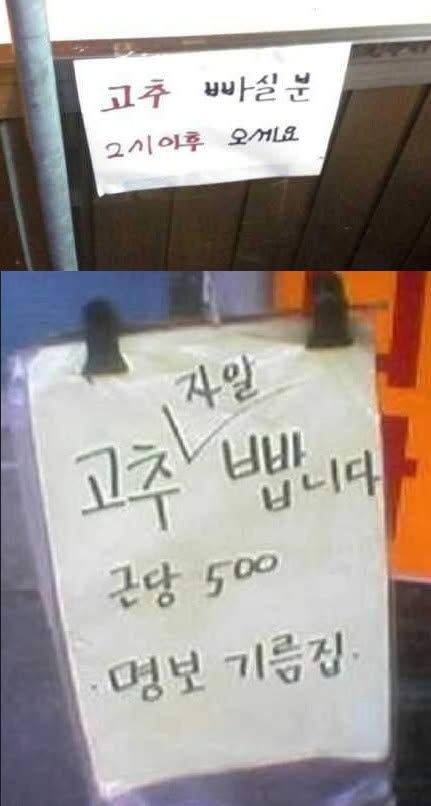 고추 빠실분
2시이후 오세요
자알
고추 빱니다
근당 500
. 명보 기름집.